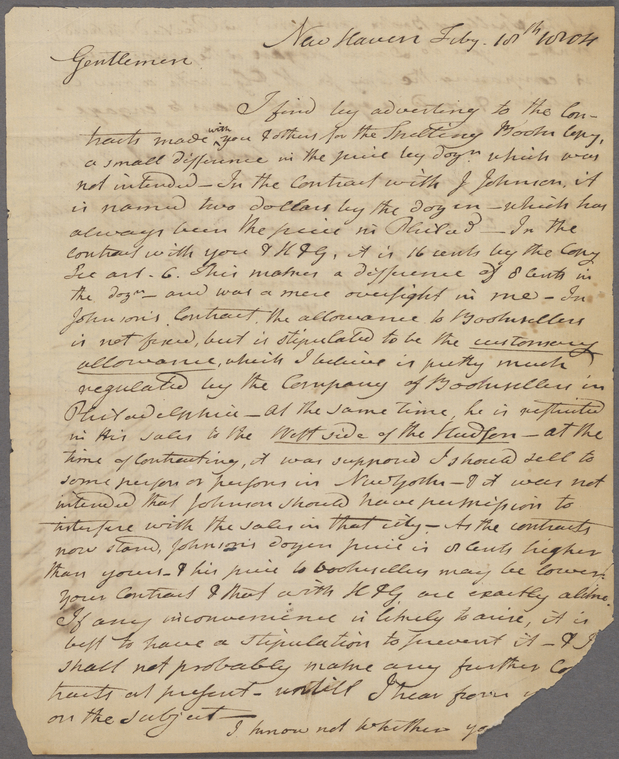 New Haven Feby. 18th 1804
Gentlemen
I find by adverting to the Con-
tracts made with you & others for the Spelling Books Copy,
a small difference in the price by dozn. which was
not intended – In the contract with J Johnson, it
is named two dollars by the dozen – which has
always been the price in Philad – In the
contract with you & H&G, it is 16 cents by the Copy
See art. 6. This makes a difference of 8 cents in
the dozn – and was a mere oversight in me – In
Johnson's Contract, the allowance to Booksellers
is not fixed, but is stipulated to be the customary
allowance, which I believe is pretty much
regulated by the Company of Booksellers in
Philadelphia – At the same time, he is restricted
in his sales to the West side of the Hudson – at the
time of contracting, it was supposed I should sell to
some person or persons in New York – & it was not
intended that Johnson should have permission to
interfere with the sales in that city – As the contracts
now stand, Johnson's dozen price is 8 cents higher
than yours – & his price to booksellers may be lower
your Contract & that with H&G are exactly alike.
If any inconvenience is likely to arise, it is
best to have a stipulation to prevent it – & I
shall not probably make any further Co
tracts at present – untill I hear from
on the subject –
I know not whether yo